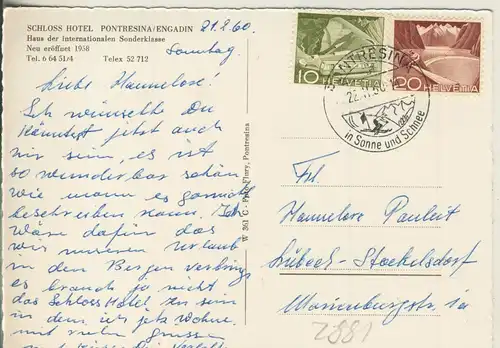 SCHLOSS HOTEL PONTRESINA/ENGADIN
Haus der internationalen Sonderklasse
Neu eröffnet 1958
Tel. 6 64 51/4 Telex 52 712
21.2.60.
Sonntag
Liebe Hannelose!
Ich wünschte Du
könntest jetzt auch
hir sein, es ist
so wunderbar schön,
wie mann es garnicht
beschreiben kann. Ich
wäre dafür das
wir unseren Urlaub
in den Bergen verbring
es brauch ja nicht
das Schloss Hotel zu sein
in dem ich jetz wohne.
mit vielen grüssen
W 361 C - Foto Flury, Pontresina
10 HELVETIA
20 HELVETIA
PONTRESINA
in Sonne und Schnee
Frl.
Hannelore Pauleit
Lübeck-Stockelsdorf
Marienburgstr. 1a
2881